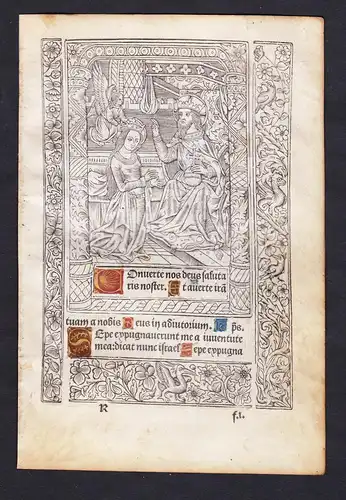 Conuerte nos deus saluta
ris noster. Et auerte irã
tuam a nobis Deus in adiutorium. ps.
Sepe expugnauerunt me a iuuentute
mea: dicat nunc israel Sepe expugna
R f.i.